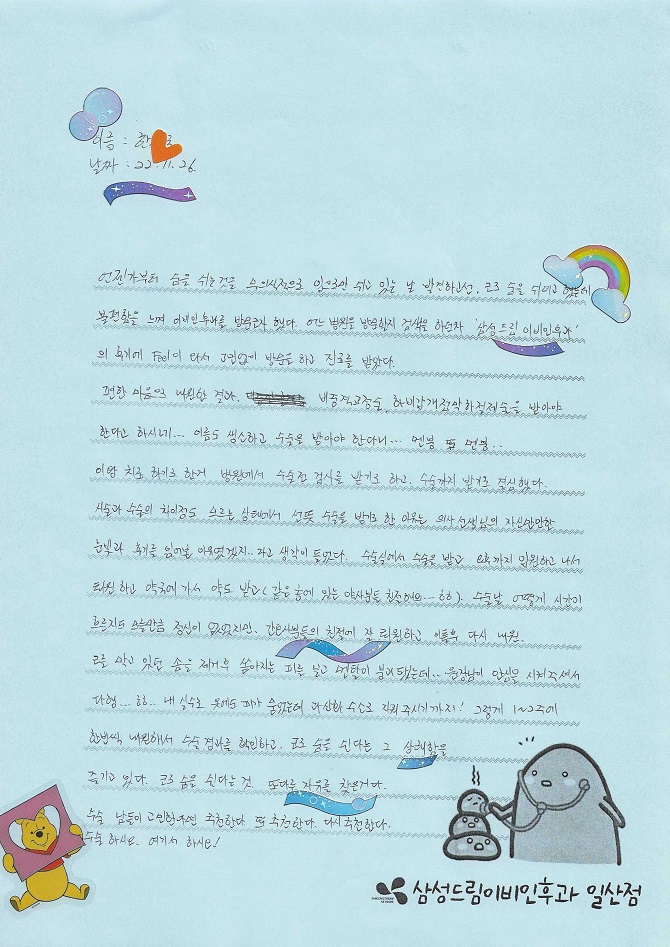 이름 : 한
날짜 : 22. 11. 26.
언젠가부터 숨을 쉬는것을 무의식적으로 입으로만 쉬고 있는 날 발견하고선, 코로 숨을 쉬려고 했는데
불편함을 느껴 이비인후과를 방문코자 했다. 어느 병원을 방문할지 검색을 하던차 '삼성드림 이비인후과'
의 후기에 Feel이 타서 고민없이 방문을 하고 진료를 받았다.
편한 마음으로 내원한 결과, 비중격교정술, 하비갑개점막하절제술을 받아야
한다고 하시네... 이름도 생소하고 수술을 받아야 한다니... 멘붕 또 멘붕..
이왕 치료하기로 한거 병원에서 수술전 검사를 받기로 하고, 수술까지 받기로 결심했다.
시술과 수술의 차이점도 모르는 상태에서 선뜻 수술을 받기로 한 이유는 의사선생님의 자신만만한
눈빛과 후기를 믿어볼 이유였겠지..라고 생각이 들었다. 수술실에서 수술을 받고 오후까지 입원하고 나서
퇴원하고 약국에 가서 약도 받고(같은 층에 있는 약사분들 친절해요...ㅎㅎ). 수술날 어떻게 시간이
흐르지도 모를만큼 정신이 없었지만, 간호사분들의 친절에 잘 퇴원하고 이틀후 다시 내원.
코를 막고 있던 솜을 제거후 쏟아지는 피를 보고 멘탈이 붕괴됐는데.. 원장님이 안심을 시켜주셔서
다행...ㅎㅎ.. 내 실수로 옷에도 피가 묻었는데 과산화수소로 지워주시기까지! 그렇게 1~2주에
한번씩 내원해서 수술경과를 확인하고, 코로 숨을 쉰다는 그 상쾌함을
즐기고 있다. 코로 숨을 쉰다는 것. 또다른 자유를 찾은거다.
수술 남들이 고민한다면 추천한다. 또 추천한다. 다시 추천한다.
수술 하시요. 여기서 하시요!
삼성드림이비인후과 일산점